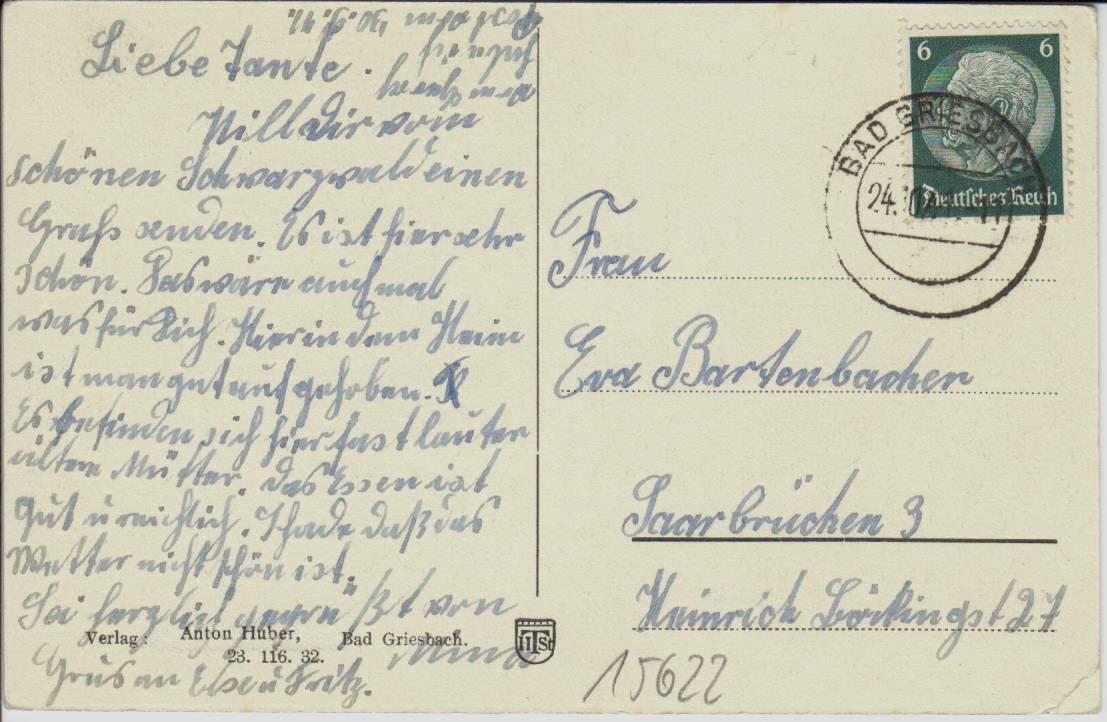 Liebe Tante.
Will Dir vom
schönen Schwarzwald einen
Gruß senden. Es ist hier sehr
schön. Das wäre auch mal
was für Dich. Hier in dem Heim
ist man gut aufgehoben.
Es befinden sich hier fast lauter
ältere Mütter. Das Essen ist
gut u reichlich. Schade daß das
Wetter nicht schön ist.
Sei herzlich gegrüßt von
Mina
Grus an Else u Fritz.
Verlag: Anton Huber, Bad Griesbach.
23. 116. 32.
HTSt
6 6
Deutsches Reich
BAD GRIESBACH
24.10.
Frau
Eva Bartenbacher
Saarbrücken 3
Heinrich Böckingst 27
15622